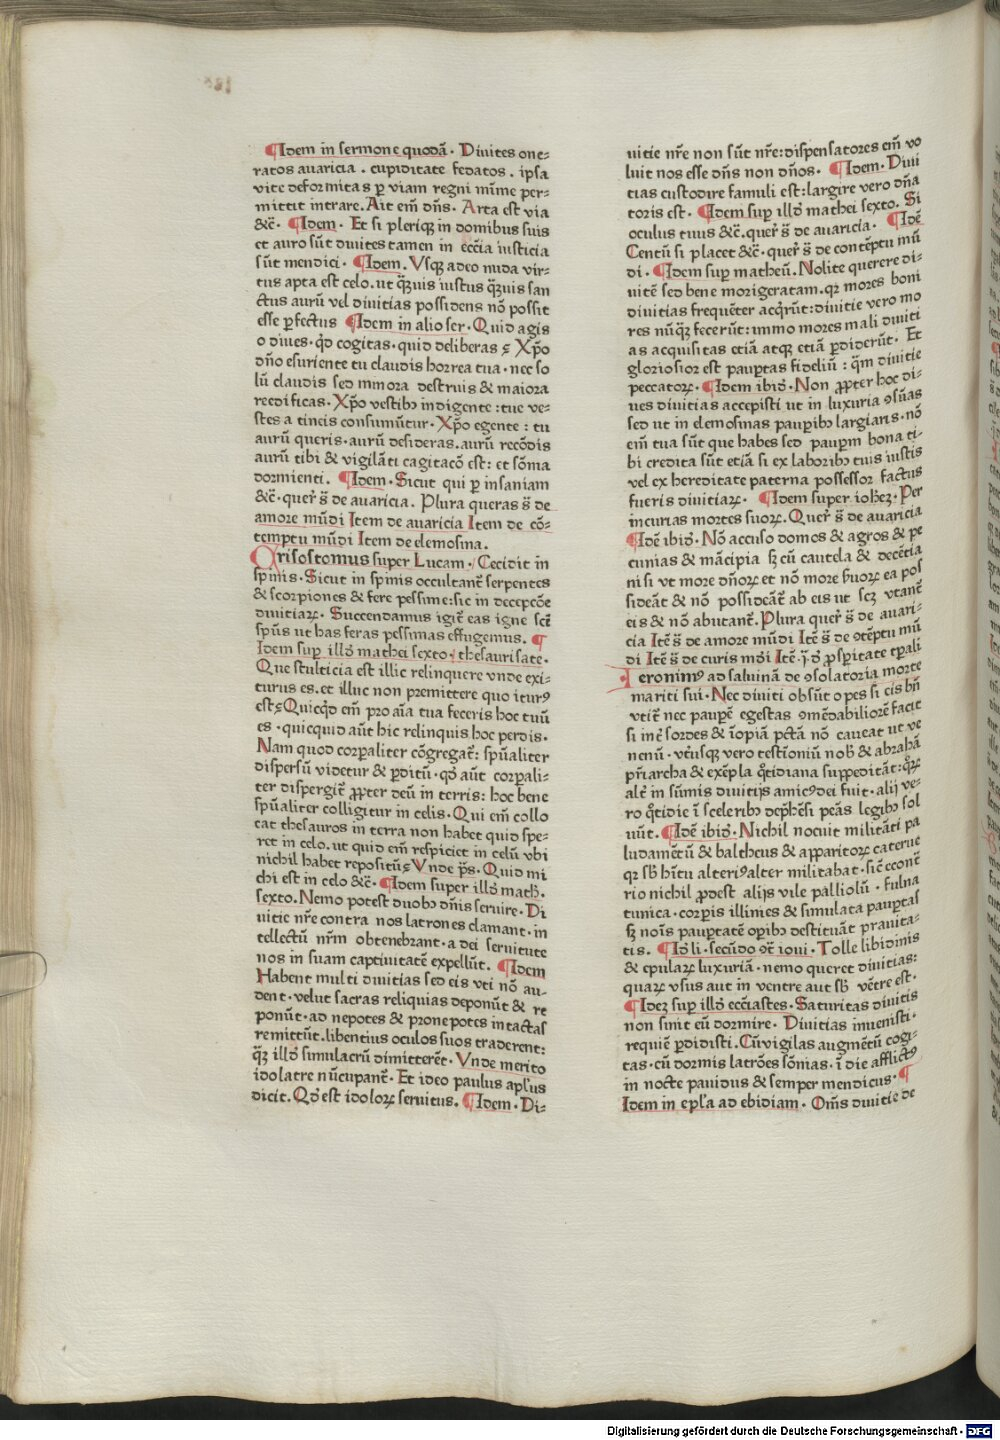 ¶Idem in sermone quodã. Diuites one-
ratos auaricia. cupiditate fedatos. ipsa
vite deformitas ꝑ viam regni mĩme per-
mittit intrare. Ait em̃ dñs. Arta est via
&c̃. ¶Idem. Et si pleriqꝫ in domibus suis
et auro sũt diuites tamen in ecc̃ia iusticia
sũt mendici. ¶Idem. Vsqꝫ adeo nuda vir-
tus apta est celo. ut q̃ꝫuis iustus q̃ꝫuis san
ctus aurũ vel diuitias possidens nõ possit
esse ꝑfectus ¶Idem in alio ser. Quid agis
o diues. qd̃ cogitas. quid deliberas ς Xp̃o
dño esuriente tu claudis horrea tua. nec so
lũ claudis sed minora destruis & maiora
reedificas. Xp̃o vestibꝫ indigente: tue ve-
stes a tineis consumũtur. Xp̃o egente: tu
aurũ queris. aurũ desideras. aurũ recõdis
aurũ tibi & vigilãti cagitacõ est: et sõma
dormienti. ¶Idem. Sicut qui ꝑ insaniam
&c̃. quer̃ s̃ de auaricia. Plura queras s̃ de
amore mũdi Item de auaricia Item de cõ-
temptu mũdi Item de elemosina.
Crisostomus super Lucam. Cecidit in
spinis. Sicut in spinis occultant̃ serpentes
& scorpiones & fere pessime: sic in decepcõe
diuitiaꝝ. Succendamus igit̃ eas igne sc̃t̃
spũs ut has feras pessimas effugemus. ¶
Idem suꝑ illõ mathei sexto. thesaurisate.
Que stulticia est illic relinquere vnde exi-
turus es. et illuc non premittere quo iturꝰ
est ς Quicqd̃ em̃ pro aĩa tua feceris hoc tuũ
es. quicquid aũt hic relinquis hoc perdis.
Nam quod corꝑaliter cõgregat̃: spũaliter
dispersũ videtur & ꝑditũ. qd̃ aũt corꝑali-
ter dispergit̃ ꝓpter deũ in terris: hoc bene
spũaliter colligitur in celis. Qui em̃ collo
cat thesauros in terra non habet quid spe-
ret in celo. ut quid em̃ respiciet in celũ vbi
nichil habet repositũ ς Vnde p̃s. Quid mi
chi est in celo &c̃. ¶Idem super illõ math.
sexto. Nemo potest duobꝫ dñis seruire. Di
uitie nr̃e contra nos latrones clamant. in
tellectũ nr̃m obtenebrant. a dei seruitute
nos in suam captiuitatẽ expellũt. ¶Idem
Habent multi diuitias sed eis vti nõ au-
dent. velut sacras reliquias deponũt & re
ponũt. ad nepotes & pronepotes intactas
remittũt. libentius oculos suos traderent:
q̃ꝫ illõ simulacrũ dimitterẽt. Vnde merito
idolatre nũcupant̃. Et ideo paulus apl'us
dicit. Qd̃ est idoloꝝ seruitus. ¶Idem. Di-
uitie nr̃e non sũt nr̃e: dispensatores em̃ vo
luit nos esse dñs non dños. ¶Idem. Diui
tias custodire famuli est: largire vero dñã
toris est. ¶Idem suꝑ illõ mathei sexto. Si
oculus tuus &c̃. quer̃ s̃ de auaricia. ¶Idẽ
Centũ si placet &c̃. quer̃ s̃ de contẽptu mũ
di. ¶Idem suꝑ matheũ. Nolite querere di-
uitẽ sed bene morigeratam. qꝛ mores boni
diuitias frequẽter acq̃rũt: diuitie vero mo
res nũq̃ꝫ fecerũt: immo mores mali diuiti
as acquisitas etiã atqꝫ etiã ꝑdiderũt. Et
gloriosior est pauꝑtas fideliũ: q̃m diuitie
peccatoꝝ. ¶Idem ibid̃. Non ꝓpter hoc di-
ues diuitias accepisti ut in luxuria ꝯsũas
sed ut in elemosinas pauꝑibꝫ largiaris. nõ
em̃ tua sũt que habes sed pauꝑm bona ti-
bi credita sũt etiã si ex laboribꝫ tuis iustis
vel ex hereditate paterna possessor factus
fueris diuitiaꝝ. ¶Idem super iohez. Per
incurias mortes suoꝝ. Quer̃ s̃ de auaricia
¶Idẽ ibid̃. Nõ accuso domos & agros & pe
cunias & mãcipia sꝫ cũ cautela & decẽtia
ni si vt more dñoꝝ et nõ more ẜuoꝝ ea pos
sideãt & nõ possideãt̃ ab eis ut scꝫ vtant̃
eis & nõ abutant̃. Plura quer̃ s̃ de auari-
cia Itẽ s̃ de amore mũdi Itẽ s̃ de ꝯtẽptu mũ
di Itẽ s̃ de curis mũdi Itẽ. ĩ. d̃ ꝓsꝑitate tꝑali
Ieronimꝰ ad saluinã de ꝯsolatoria morte
mariti sui. Nec diuiti obsũt opes si eis bñ
vtit̃ nec pauꝑẽ egestas ꝯmẽdabiliorẽ facit
si int̃ sordes & ĩopiã pctã nõ caueat ut ve
neniũ. vtriusqꝫ vero testĩoniũ nob̃ & abrahã
pr̃iarcha & exẽpla q̃tidiana suppeditãt: qꝝ
alt̃ in sũmis diuitijs amicꝰdei fuit. alij ve-
ro q̃tidie ĩ sceleribꝫ dep̃hẽsi peas legibꝫ sol
uũt. ¶Idẽ ibid̃. Nichil nocuit militãti pa
ludamẽtũ & baltheus & apparitoꝝ caterue
qꝛ sb̃ hĩtu alteriꝰalter militabat. sic̃ econt̃
rio nichil ꝓdest alijs vile palliolũ. fulua
tunica. corꝑis illinies & simulata pauꝑtas
sꝫ noĩs pauꝑtatẽ oꝑibꝫ destituãt prauita-
tis. ¶Id̃ li. secũdo ꝯt̃ ioui. Tolle libidinis
& epulaꝝ luxuriã. nemo queret diuitias:
quaꝝ vsus aut in ventre aut sb̃ vẽtre est.
¶Ideꝫ suꝑ illõ ecc̃iastes. Saturitas diuitis
non sinit eũ dormire. Diuitias inuenisti.
requiẽ ꝑdidisti. Cũ vigilas augmẽtũ cogi-
tas. cũ dormis latrões sõnias. ĩ die afflictꝰ
in nocte pauidus & semper mendicus. ¶
Idem in epl'a ad ebidiam. Om̃s diuitie de
Digitalisierung gefördert durch die Deutsche Forschungsgemeinschaft - DFG